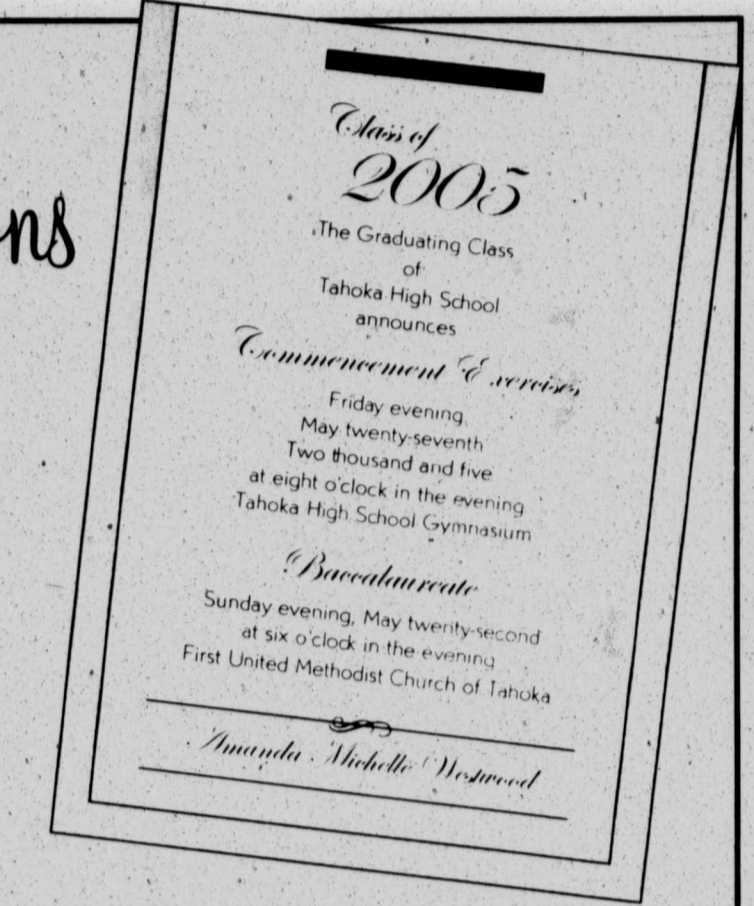 ns
Class of
2005
The Graduating Class
of
Tahoka High School
announces
Commencement Exercises
Friday evening
May twenty-seventh
Two thousand and five
at eight o'clock in the evening
Tahoka High School Gymnasium
Baccalaureate
Sunday evening, May twenty-second
at six o'clock in the evening
First United Methodist Church of Tahoka
Amanda Michelle Westwood